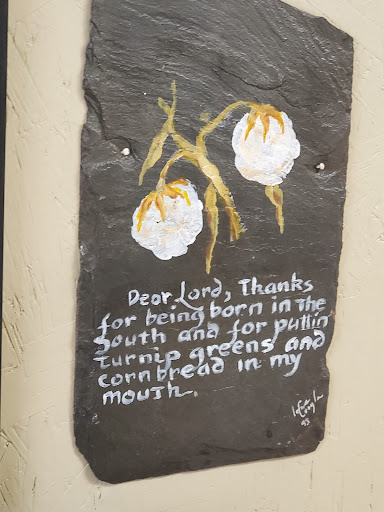 Dear Lord, Thanks
for being born in The
South and for puttin'
Turnip greens and
cornbread in my
mouth.
93